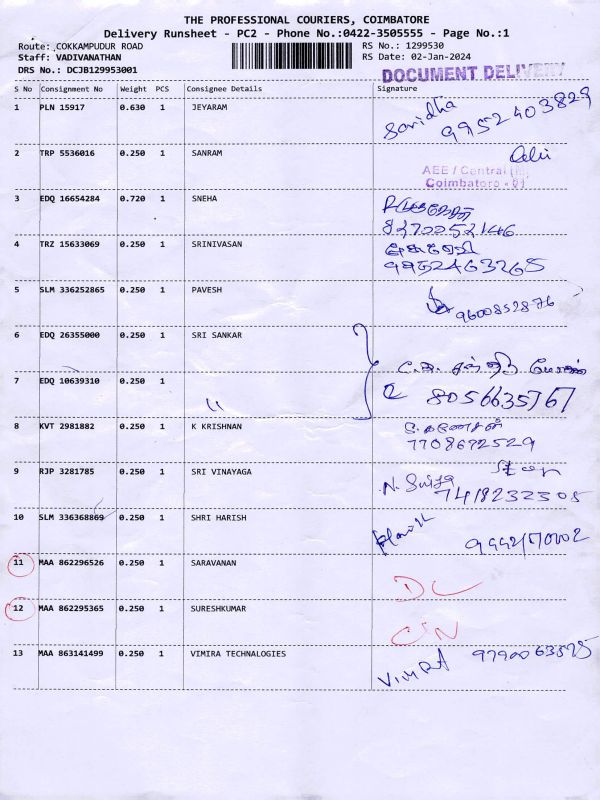 THE PROFESSIONAL COURIERS, COIMBATORE
Delivery Runsheet - PC2 - Phone No.:0422-3505555 - Page No.:1
Route: COKKAMPUDUR ROAD RS No.: 1299530
Staff: VADIVANATHAN RS Date: 02-Jan-2024
DRS No.: DCJB129953001
DOCUMENT DELIVERY
S No Consignment No Weight PCS Consignee Details Signature
1 PLN 15917 0.630 1 JEYARAM
9952403829
2 TRP 5536016 0.250 1 SANRAM
AEE / Central
Coimbatore - 01
3 EDQ 16654284 0.720 1 SNEHA
8270052146
4 TRZ 15633069 0.250 1 SRINIVASAN
9952463265
5 SLM 336252865 0.250 1 PAVESH
9600852876
6 EDQ 26355000 0.250 1 SRI SANKAR
7 EDQ 10639310 0.250 1 "
8056635767
8 KVT 2981882 0.250 1 K KRISHNAN
7708672529
9 RJP 3281785 0.250 1 SRI VINAYAGA
7418232305
10 SLM 336368869 0.250 1 SHRI HARISH
11 MAA 862296526 0.250 1 SARAVANAN
DL
12 MAA 862295365 0.250 1 SURESHKUMAR
13 MAA 863141499 0.250 1 VIMIRA TECHNALOGIES
9790063575